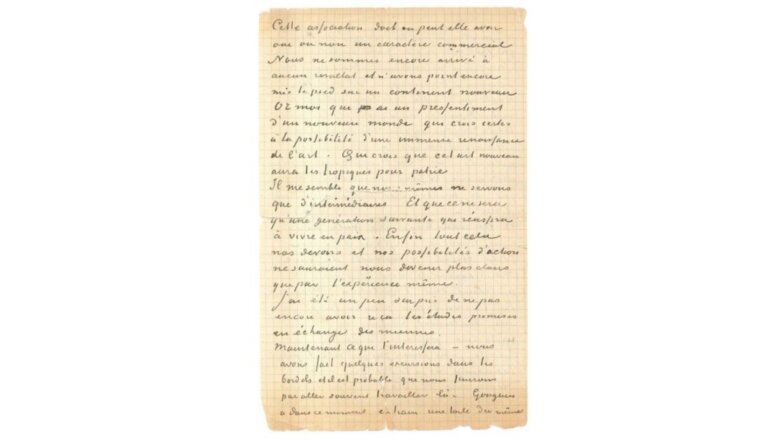 Cette association doit ou peut elle avoir
oui ou non un caractère commercial
Nous ne sommes encore arrivé à
aucun resultat et n'avons point encore
mis le pied sur un continent nouveau
Or moi que ai un presentiment
d'un nouveau monde qui crois certes
à la possibilité d'une immense renaissance
de l'art. Qui crois que cet art nouveau
aura les tropiques pour patrie
Il me semble que nous mêmes ne servons
que d'intermédiaires Et que ce ne sera
qu'une génération suivante qui réussira
à vivre en paix. Enfin tout cela
nos devoirs et nos possibilités d'action
ne sauraient nous devenir plus clairs
que par l'expérience même.
J'ai été un peu surpris de ne pas
encore avoir reçu les études promises
en échange des miennes.
Maintenant ce qui t'interessera – nous
avons fait quelques excursions dans les
bordels et il est probable que nous finirons
par aller souvent travailler là. Gauguin
a dans ce moment en train une toile du même